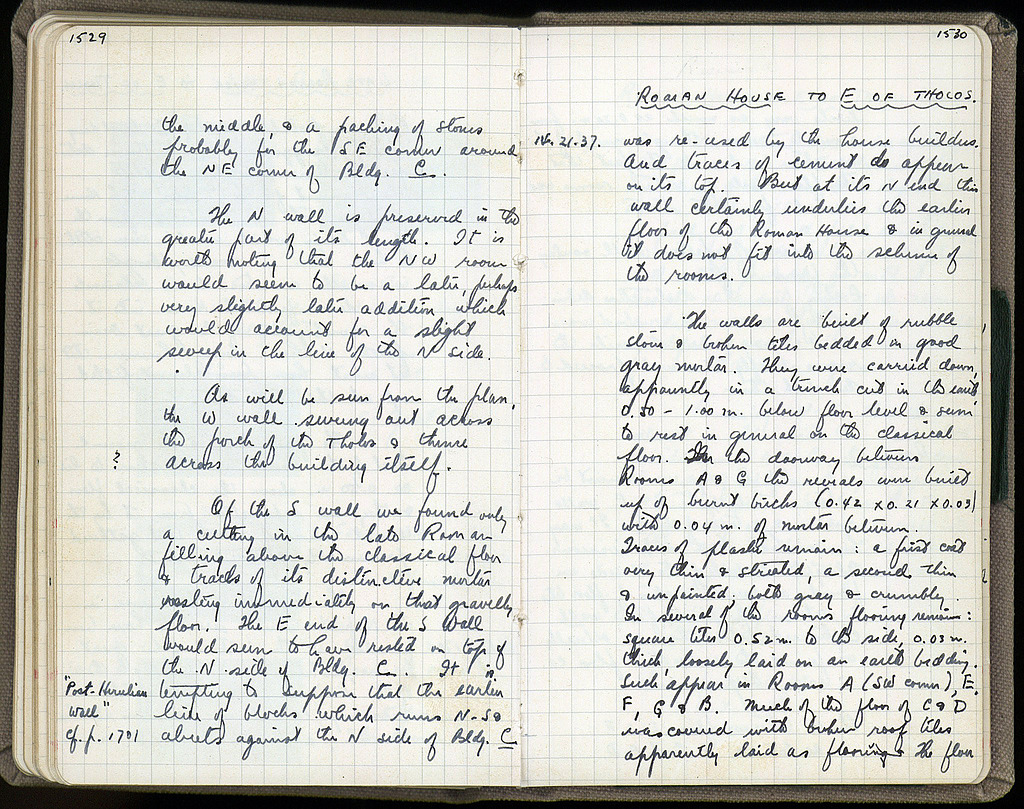 1529
the middle, & a packing of stones
probably for the SE corner around
the NE corner of Bldg. C.
The N wall is preserved in the
greater part of its length. It is
worth noting that the NW room
would seem to be a later, perhaps
very slightly later addition which
would account for a slight
sweep in the line of the N side.
As will be seen from the plan,
the W wall swung out across
the porch of the Tholos & thence
? across the building itself.
Of the S wall we found only
a cutting in the late Roman
filling above the classical floor
& traces of its distinctive mortar
resting immediately on that gravelly
floor. The E end of the S wall
would seem to have rested on top of
the N side of Bldg. C. It is
"Post-Herulian tempting to suppose that the earlier
wall" line of blocks which runs N-S &
cf. p. 1701 abuts against the N side of Bldg. C
1530
ROMAN HOUSE TO E OF THOLOS.
IV. 21.37. was re-used by the house builders.
And traces of cement do appear
on its top. But at its N end this
wall certainly underlies the earlier
floor of the Roman House & in general
it does not fit into the scheme of
the rooms.
The walls are built of rubble
stone & broken tiles bedded in good
gray mortar. They were carried down,
apparently in a trench cut in the earth
0.50 - 1.00 m. below floor level & seem
to rest in general on the classical
floor. In the doorway between
Rooms A & G the reveals were built
up of burnt bricks (0.42 x 0.21 x 0.03)
with 0.04 m. of mortar between.
Traces of plaster remain: a first coat
very thin & striated, a second thin
& unpainted; both gray & crumbly.
In several of the rooms flooring remains:
square tiles 0.52 m. to the side, 0.03 m.
thick, loosely laid on an earth bedding.
Such appear in Rooms A (SW corner), E,
F, G & B. Much of the floor of C & D
was covered with broken roof tiles
apparently laid as flooring. The floor